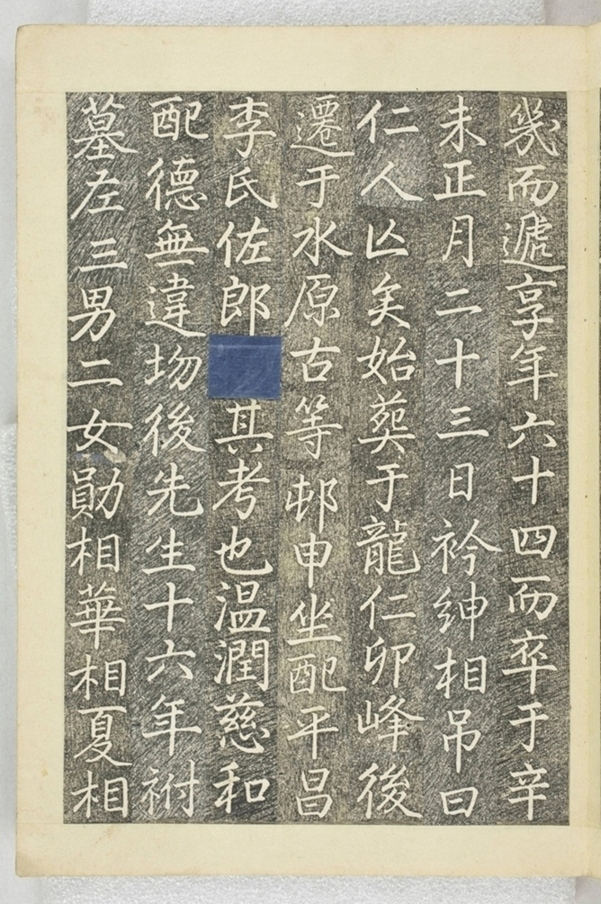 幾而遞享年六十四而卒于辛
未正月二十三日衿紳相吊曰
仁人亡矣始葬于龍仁卯峰後
遷于水原古等邨申坐配平昌
李氏佐郎其考也温潤慈和
配德無違歿後先生十六年祔
墓左三男二女勛相華相夏相